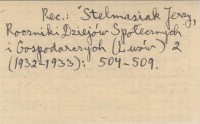 Rec.: "Stelmasiak Jerzy,
Roczniki Dziejów Społecznych
i Gospodarczych (Lwów) 2
(1932-1933): 504-509.